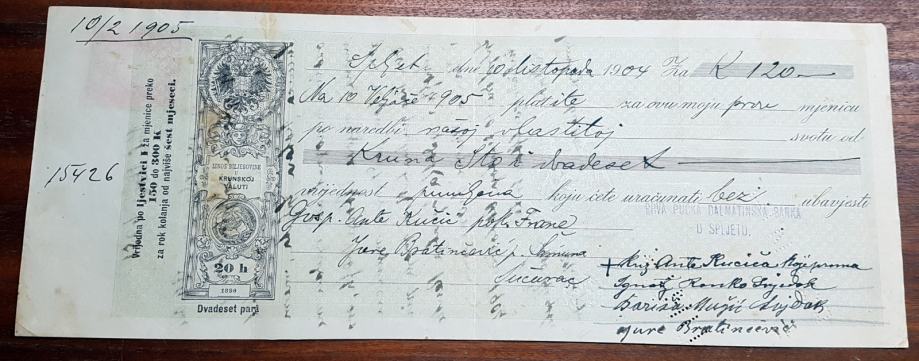 10/2 1905
15426
Vrijedna po ljestvici I za mjenice preko
150 do 300 K
za rok kolanja od najviše šest mjeseci.
IZNOS BILJEGOVINE
KRUNSKOJ
VALUTI
20 h
1898
Dvadeset para
Spljet dne 10 listopada 1904 Za K 120
Na 10 Veljače 1905 platite za ovu moju prvu mjenicu
po naredbi vašoj vlastitoj svotu od
Kruna Sto i dvadeset
vrijednost primljena koju ćete uračunati bez ubavjesti
Gosp. Ante Kučić pok. Frane
Jure Bratinčević p. Šimuna
Sućurac
PRVA PUČKA DALMATINSKA BANKA
U SPLJETU.
+ Križ Ante Kucića
Ignac Konko Svjedok
Svjedok
Jure Bratincević